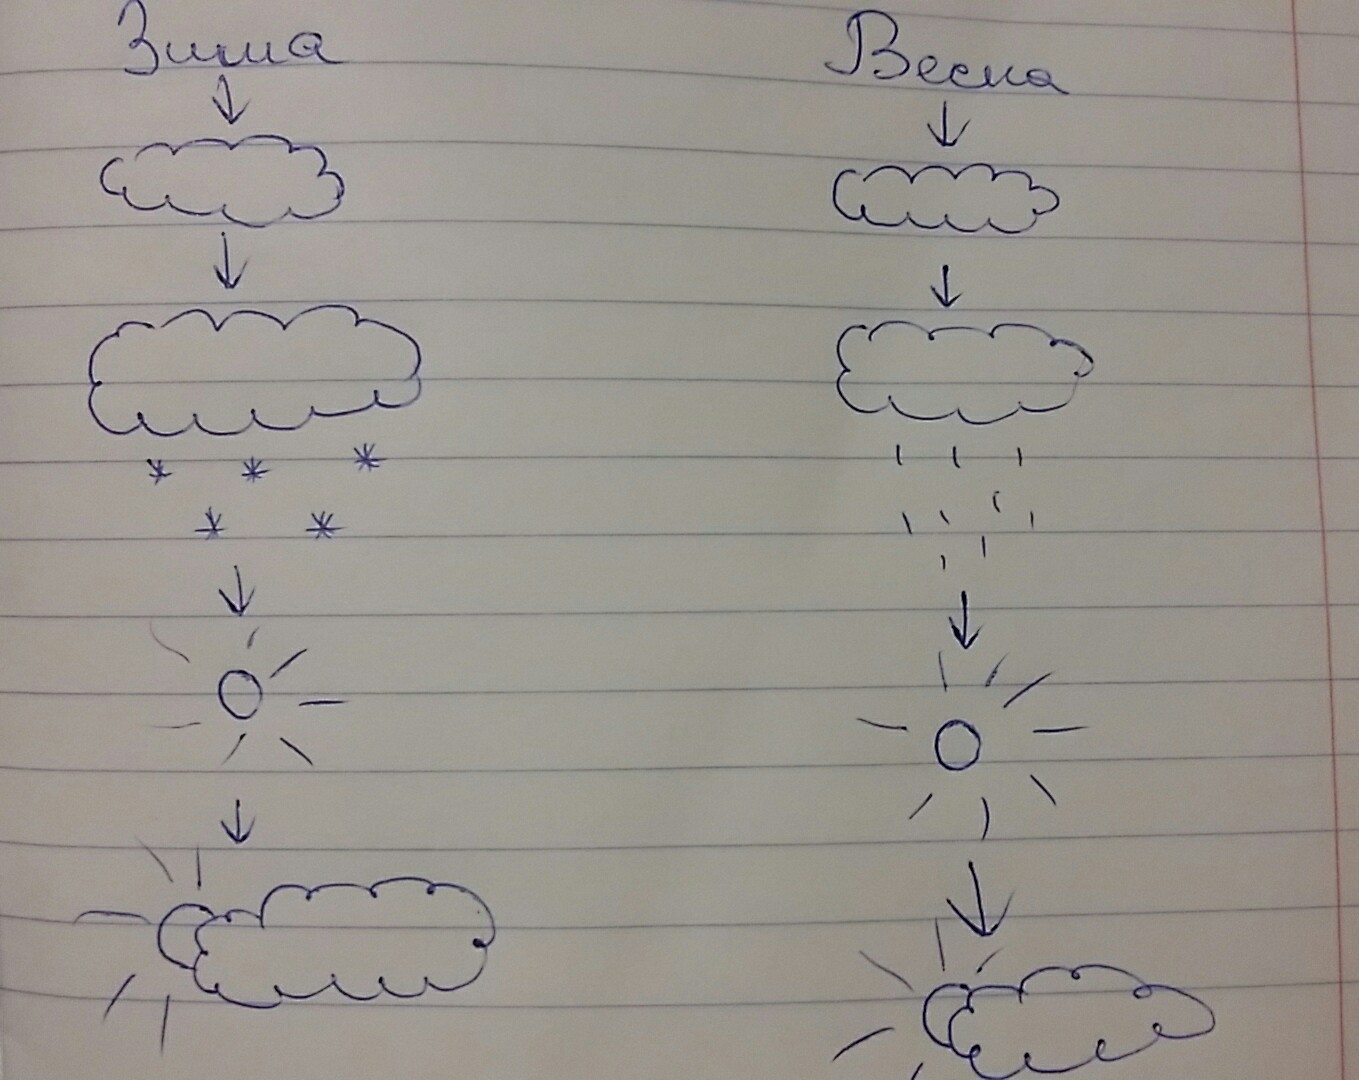 Зима
Весна